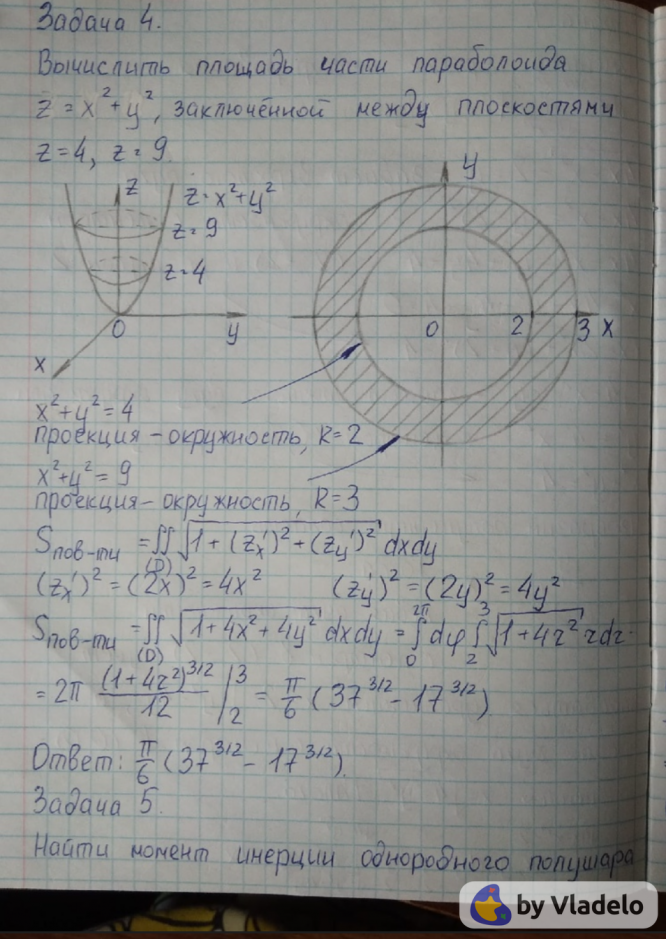 Задача 4.
Вычислить площадь части параболоида
z = x² + y², заключённой между плоскостями
z = 4, z = 9.
z
z = x² + y²
z = 9
z = 4
0
y
x
y
0
2
3
x
x² + y² = 4
проекция - окружность, R = 2
x² + y² = 9
проекция - окружность, R = 3
Sпов-ти = ∬(D) √(1 + (zx′)² + (zy′)²) dxdy
(zx′)² = (2x)² = 4x² (zy′)² = (2y)² = 4y²
Sпов-ти = ∬(D) √(1 + 4x² + 4y²) dxdy = ∫₀^2π dφ ∫₂³ √(1 + 4r²) rdr =
= 2π (1 + 4r²)^3/2 / 12 |₂³ = π/6 (37^3/2 - 17^3/2)
Ответ: π/6 (37^3/2 - 17^3/2).
Задача 5.
Найти момент инерции одноробного полушара
by Vladelo